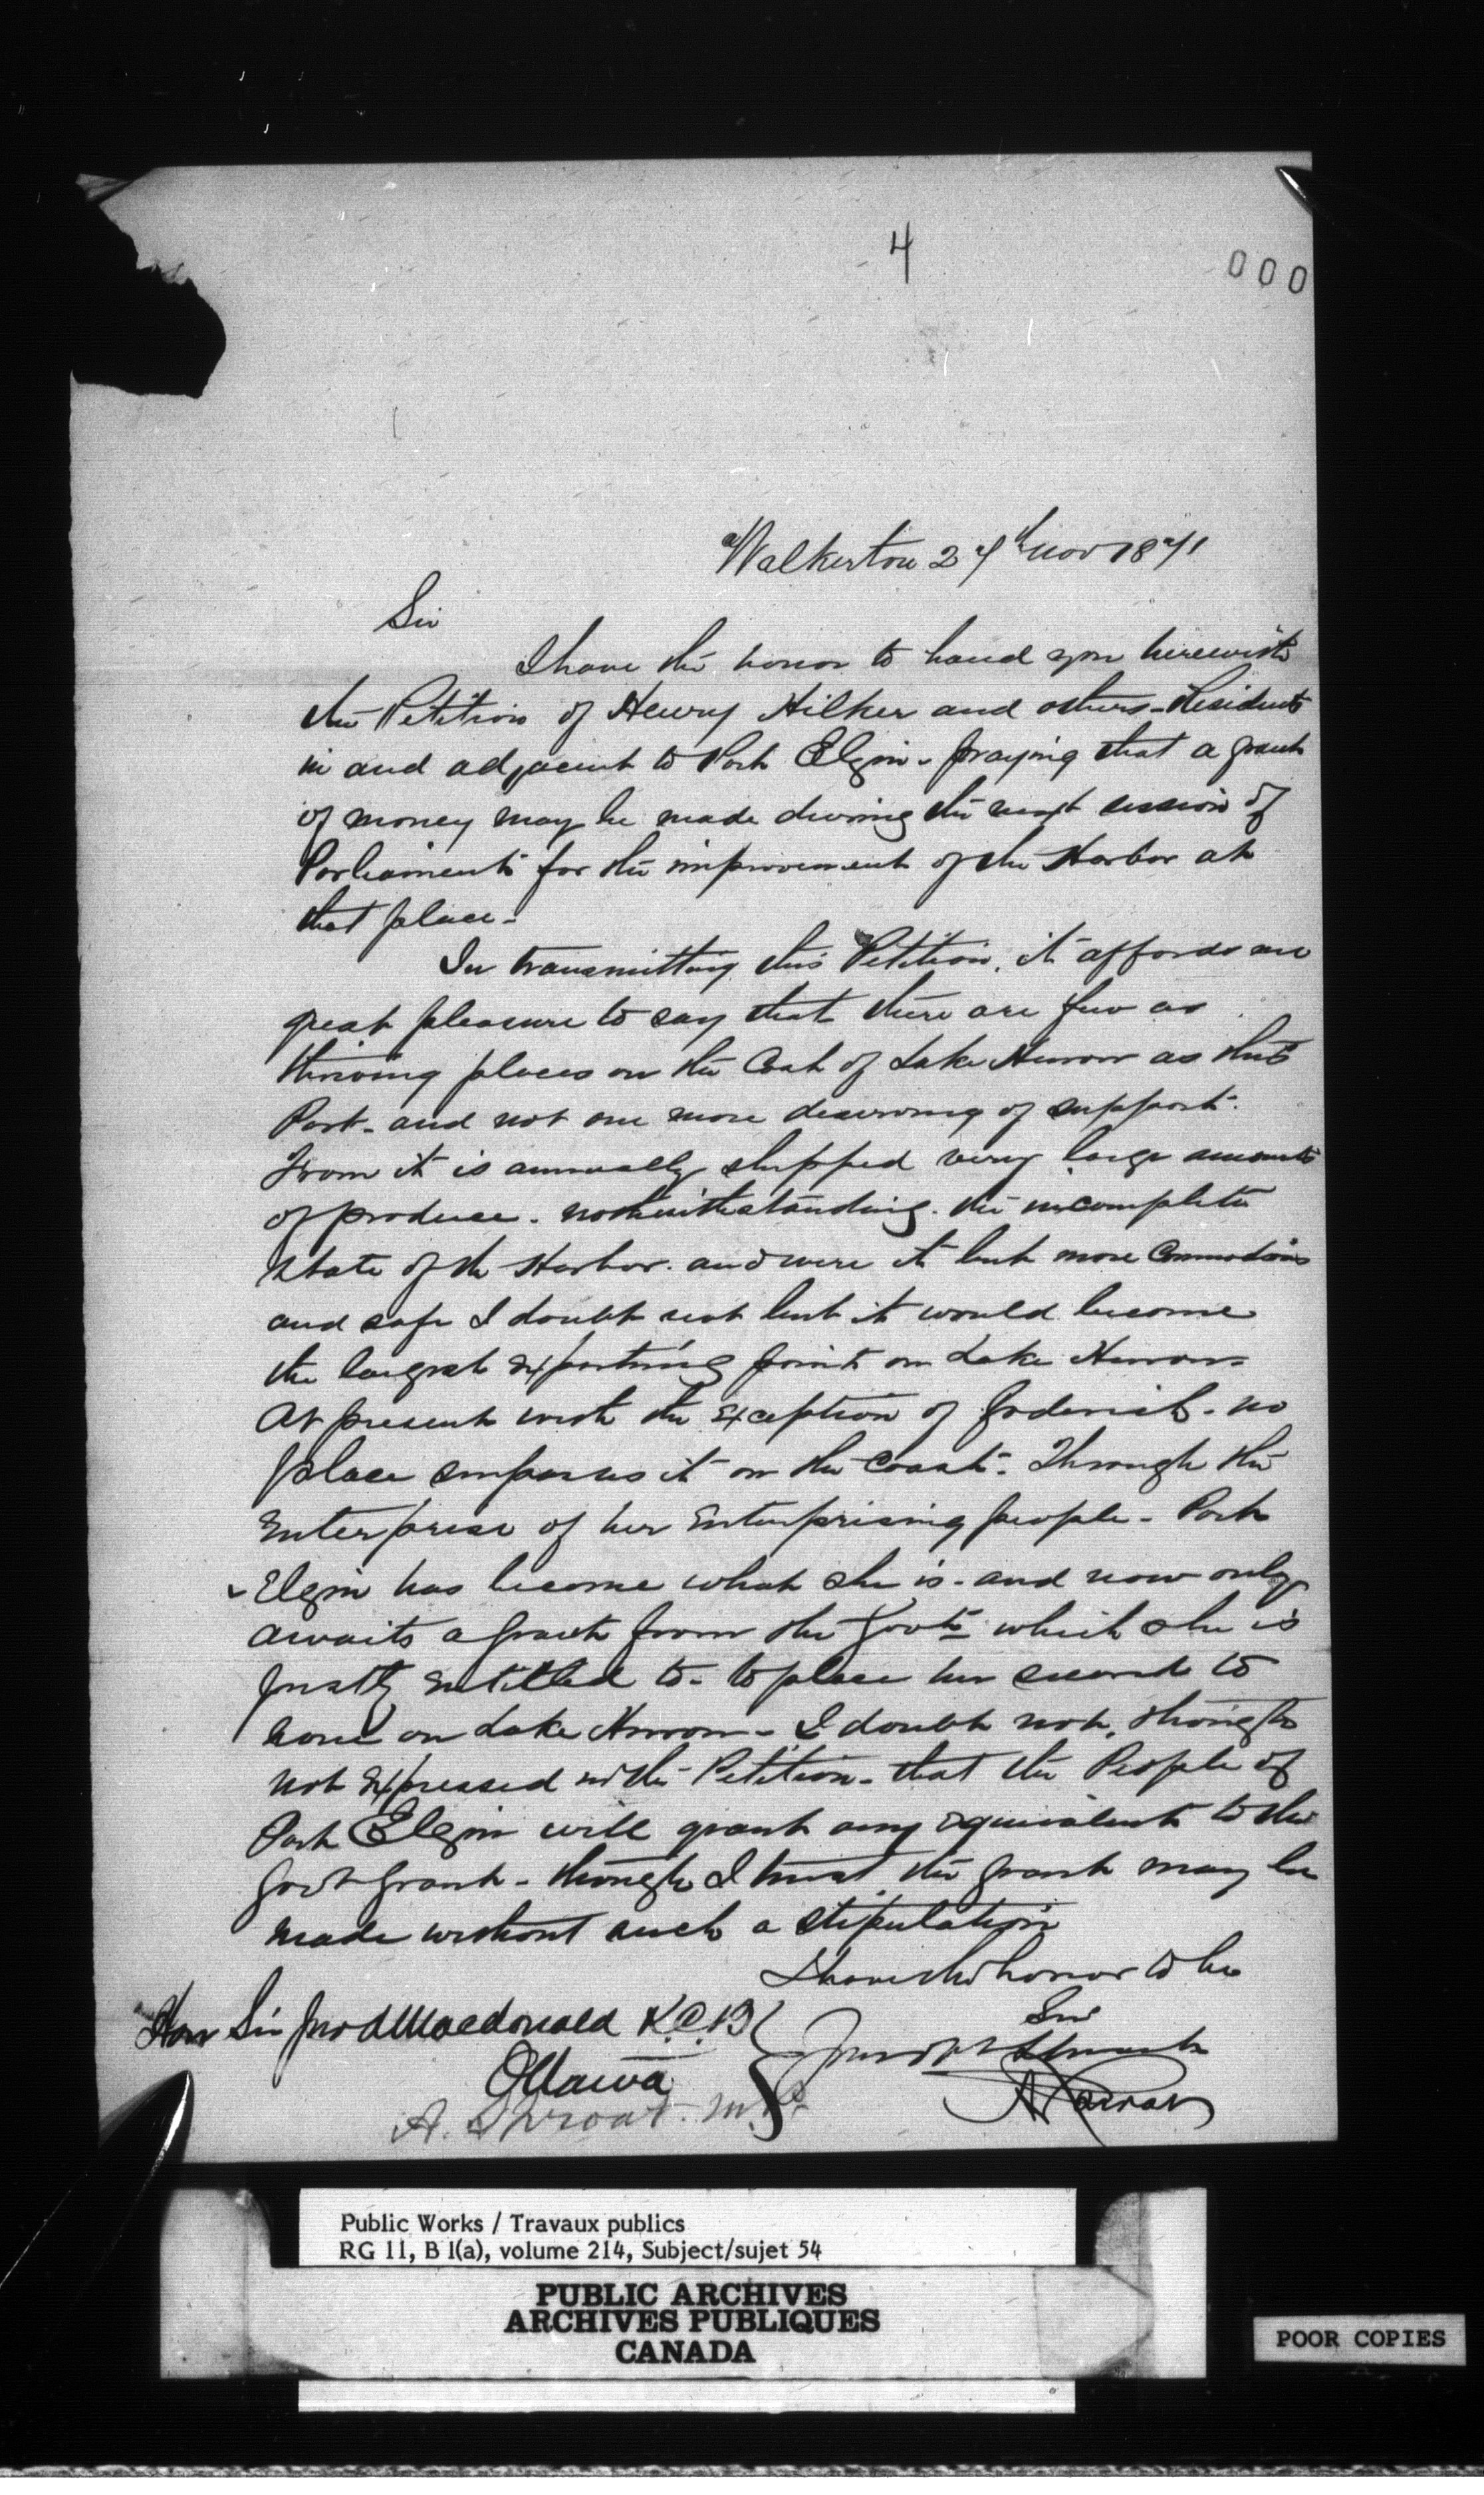 4
000
Walkerton 27th Nov 1871
Sir
I have the honor to hand you herewith
the Petition of Henry Hilker and others - Residents
in and adjacent to Port Elgin - praying that a grant
of money may be made during the next session of
Parliament for the improvement of the Harbor at
that place -
In transmitting this Petition, it affords me
great pleasure to say that there are few as
thriving places on the Coast of Lake Huron as this
Port - and not one more deserving of support.
From it is annually shipped very large amounts
of produce - notwithstanding the incomplete
state of the Harbor. and were it but more Commodious
and safe I doubt not but it would become
the largest exporting point on Lake Huron -
At present with the exception of Goderich - no
place surpasses it on the Coast. Through the
Enterprise of her Enterprising people - Port
Elgin has become what she is - and now only
awaits a grant from the Govt which she is
justly entitled to - to place her second to
none on Lake Huron - I doubt not, though
not expressed in the Petition - that the People of
Port Elgin will grant any equivalent to the
Govt Grant - though I trust the grant may be
made without such a stipulation
I have the honor to be
Sir
Hon Sir Jno A Macdonald K.C.B
Your Obt Servant
Ottawa
A. Sproat. M.P.
Public Works / Travaux publics
RG 11, B 1(a), volume 214, Subject/sujet 54
PUBLIC ARCHIVES
ARCHIVES PUBLIQUES
CANADA
POOR COPIES